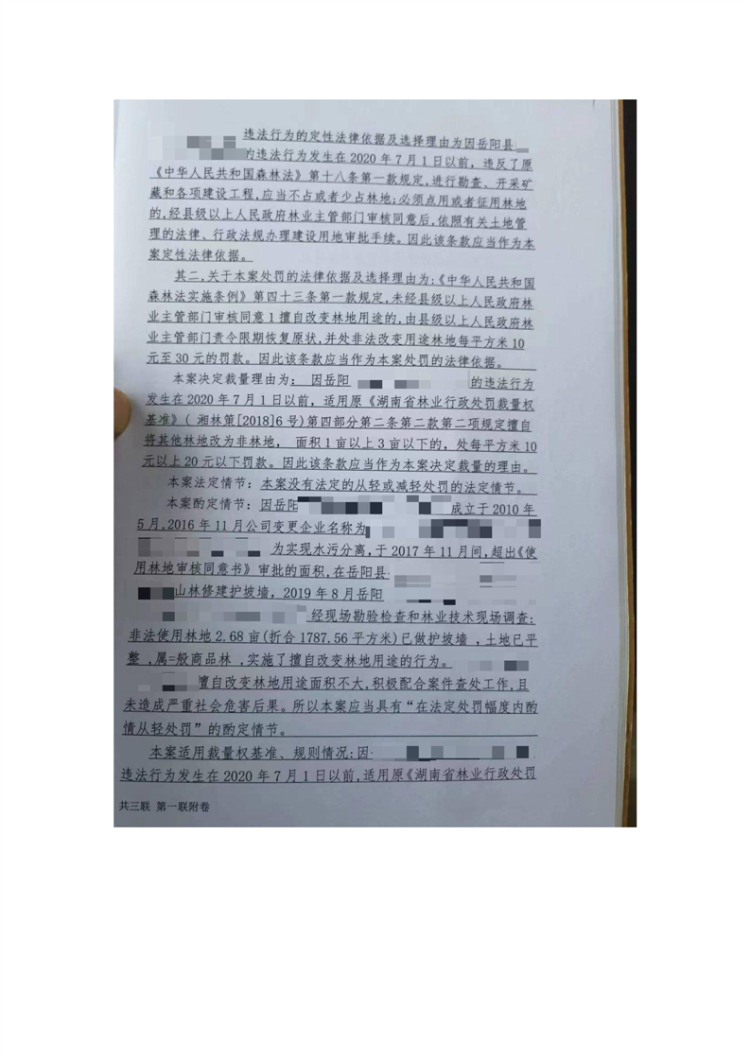 违法行为的定性法律依据及选择理由为因岳阳县
的违法行为发生在2020年7月1日以前，违反了原
《中华人民共和国森林法》第十八条第一款规定,进行勘查、开采矿
藏和各项建设工程,应当不占或者少占林地;必须点用或者征用林地
的,经县级以上人民政府林业主管部门审核同意后,依照有关土地管
理的法律、行政法规办理建设用地审批手续。因此该条款应当作为本
案定性法律依据。
其二,关于本案处罚的法律依据及选择理由为:《中华人民共和国
森林法实施条例》第四十三条第一款规定,未经县级以上人民政府林
业主管部门审核同意1擅自改变林地用途的,由县级以上人民政府林
业主管部门责令限期恢复原状,并处非法改变用途林地每平方米10
元至30元的罚款。因此该条款应当作为本案处罚的法律依据。
本案决定裁量理由为：因岳阳
的违法行为
发生在2020年7月1日以前，适用原《湖南省林业行政处罚裁量权
基准》(湘林策[2018]6号)第四部分第二条第二款第二项规定擅自
将其他林地改为非林地，面积1亩以上3亩以下的，处每平方米10
元以上20元以下罚款。因此该条款应当作为本案决定裁量的理由。
本案法定情节：本案没有法定的从轻或减轻处罚的法定情节。
本案酌定情节：因岳阳
成立于2010年
5月,2016年11月公司变更企业名称为
为实现水污分离,于2017年11月间,超出《使
用林地审核同意书》审批的面积,在岳阳县
山林修建护坡墙，2019年8月岳阳
经现场勘验检查和林业技术现场调查:
非法使用林地2.68亩(折合1787.56平方米)已做护坡墙,土地已平
整,属=般商品林,实施了擅自改变林地用途的行为。
擅自改变林地用途面积不大,积极配合案件查处工作,且
未造成严重社会危害后果。所以本案应当具有“在法定处罚幅度内酌
情从轻处罚”的酌定情节。
本案适用裁量权基准、规则情况:因
违法行为发生在2020年7月1日以前,适用原《湖南省林业行政处罚
共三联 第一联附卷